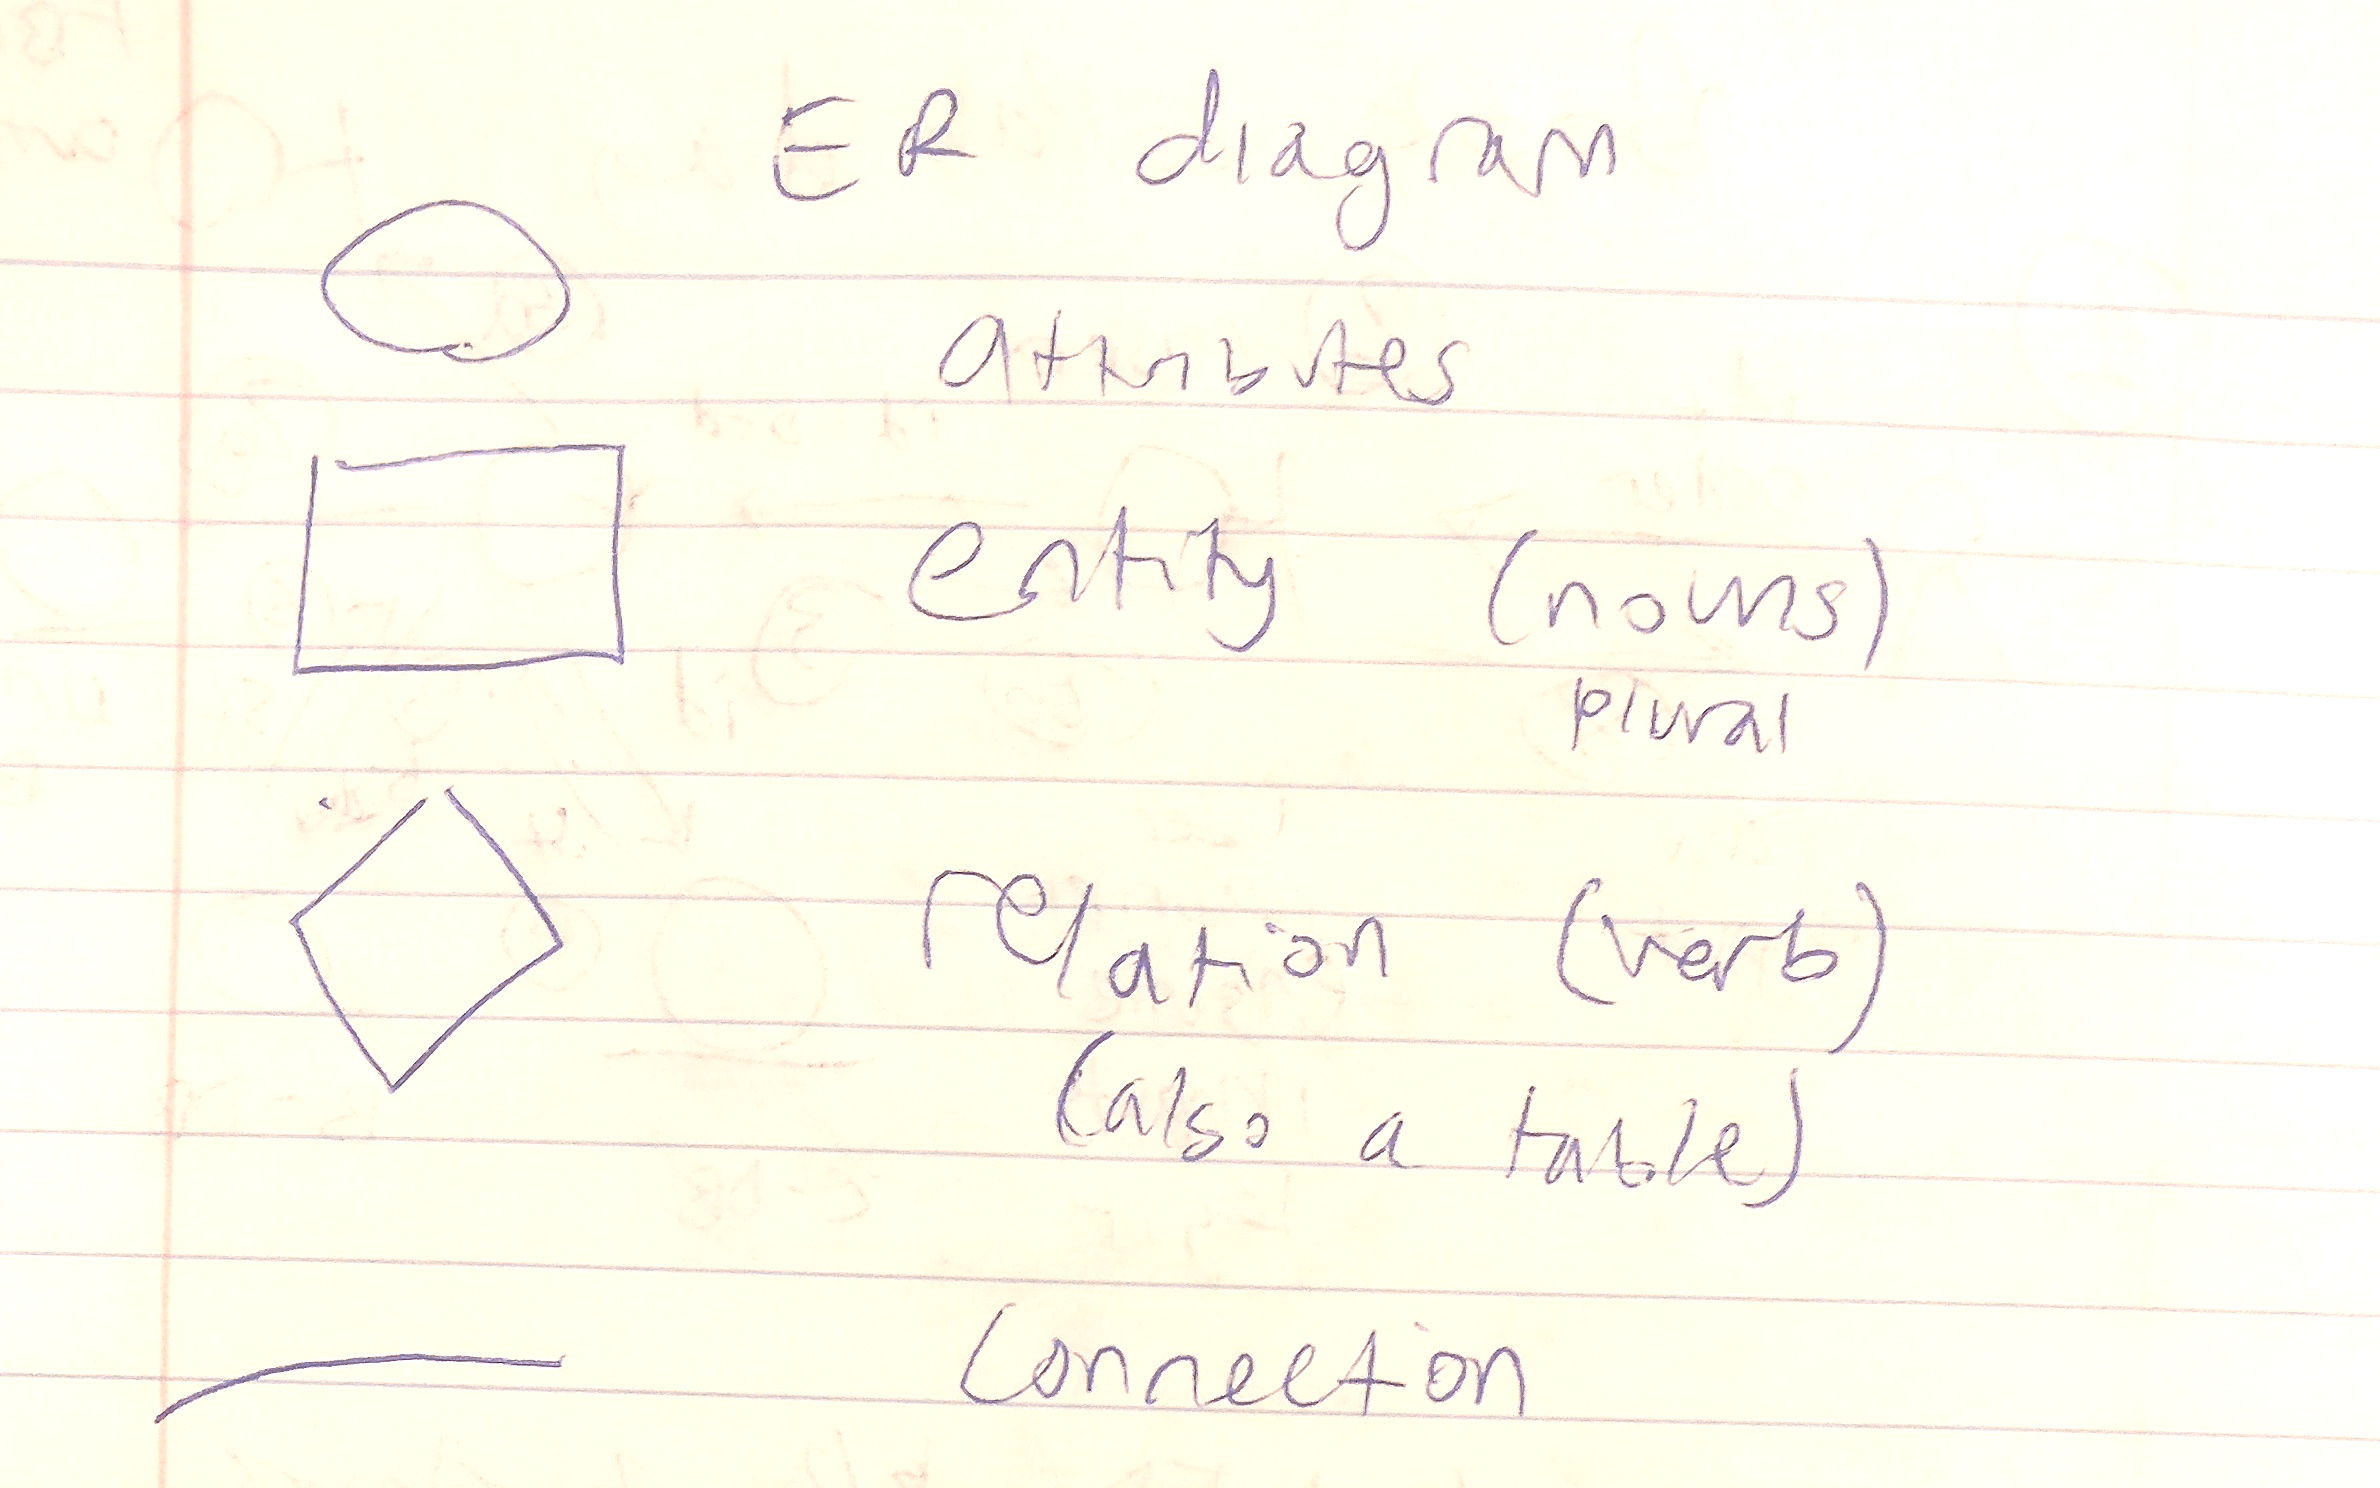 ER diagram
attributes
entity (nouns)
plural
relation (verb)
(also a table)
connection